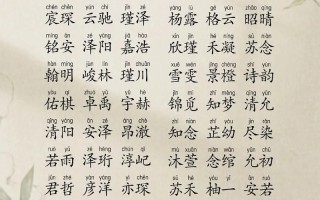 chén chēn yún chí jǐn zé yáng lù gé yún zhāo qíng
宸琛 云驰 瑾泽 杨露 格云 昭晴
míng ān zé yáng jiā hào xīn jǐn hé níng sū niàn
铭安 泽阳 嘉浩 欣瑾 禾凝 苏念
hàn míng jùn lín jǐn chuān xuě wén jǐng chéng shī yùn
翰明 峻林 瑾川 雪雯 景橙 诗韵
yòu qí zhuó yǔ yǔ hè jǐn mì zhī mèng qīng yǔn
佑棋 卓禹 宇赫 锦觅 知梦 清允
qīng yáng ān zé áng chè zhī niàn zhǐ yòu jìn rǎn
清阳 安泽 昂澈 知念 芷幼 尽染
ruò yǔ zé héng chún sì mù xuān niàn wǎn yǔn chū
若雨 泽珩 淳屺 沐萱 念绾 允初
jūn zhé yàn yáng yì chēn sū hé yòu yī ān ruò
君哲 彦洋 亦琛 苏禾 柚一 安若